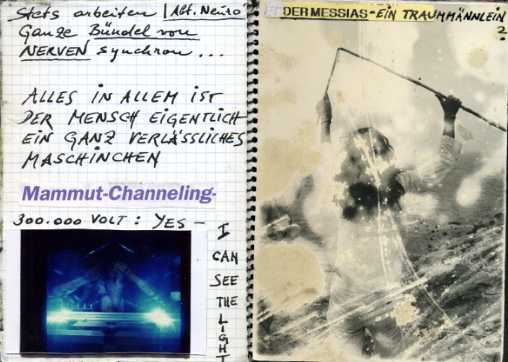 Stets arbeiten | Abt. Neuro
Ganze Bündel von
NERVEN synchron...
ALLES IN ALLEM IST
DER MENSCH EIGENTLICH
EIN GANZ VERLÄSSLICHES
MASCHINCHEN
Mammut-Channeling-
300.000 VOLT: YES –
I
CAN
SEE
THE
LIGHT
DER MESSIAS - EIN TRAUMMÄNNLEIN
?